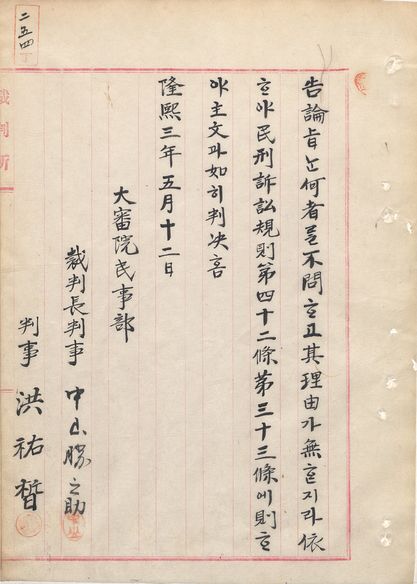 告論旨ᄂᆞᆫ何者를不問ᄒᆞ고其理由가無ᄒᆞᆫ지라依
ᄒᆞ야民刑訴訟規則第四十二條第三十三條에則ᄒᆞ
야主文과如히判决홈
隆熙三年五月十二日
大審院民事部
裁判長判事 中山勝之助
判事 洪祐晳
二五四
裁判所